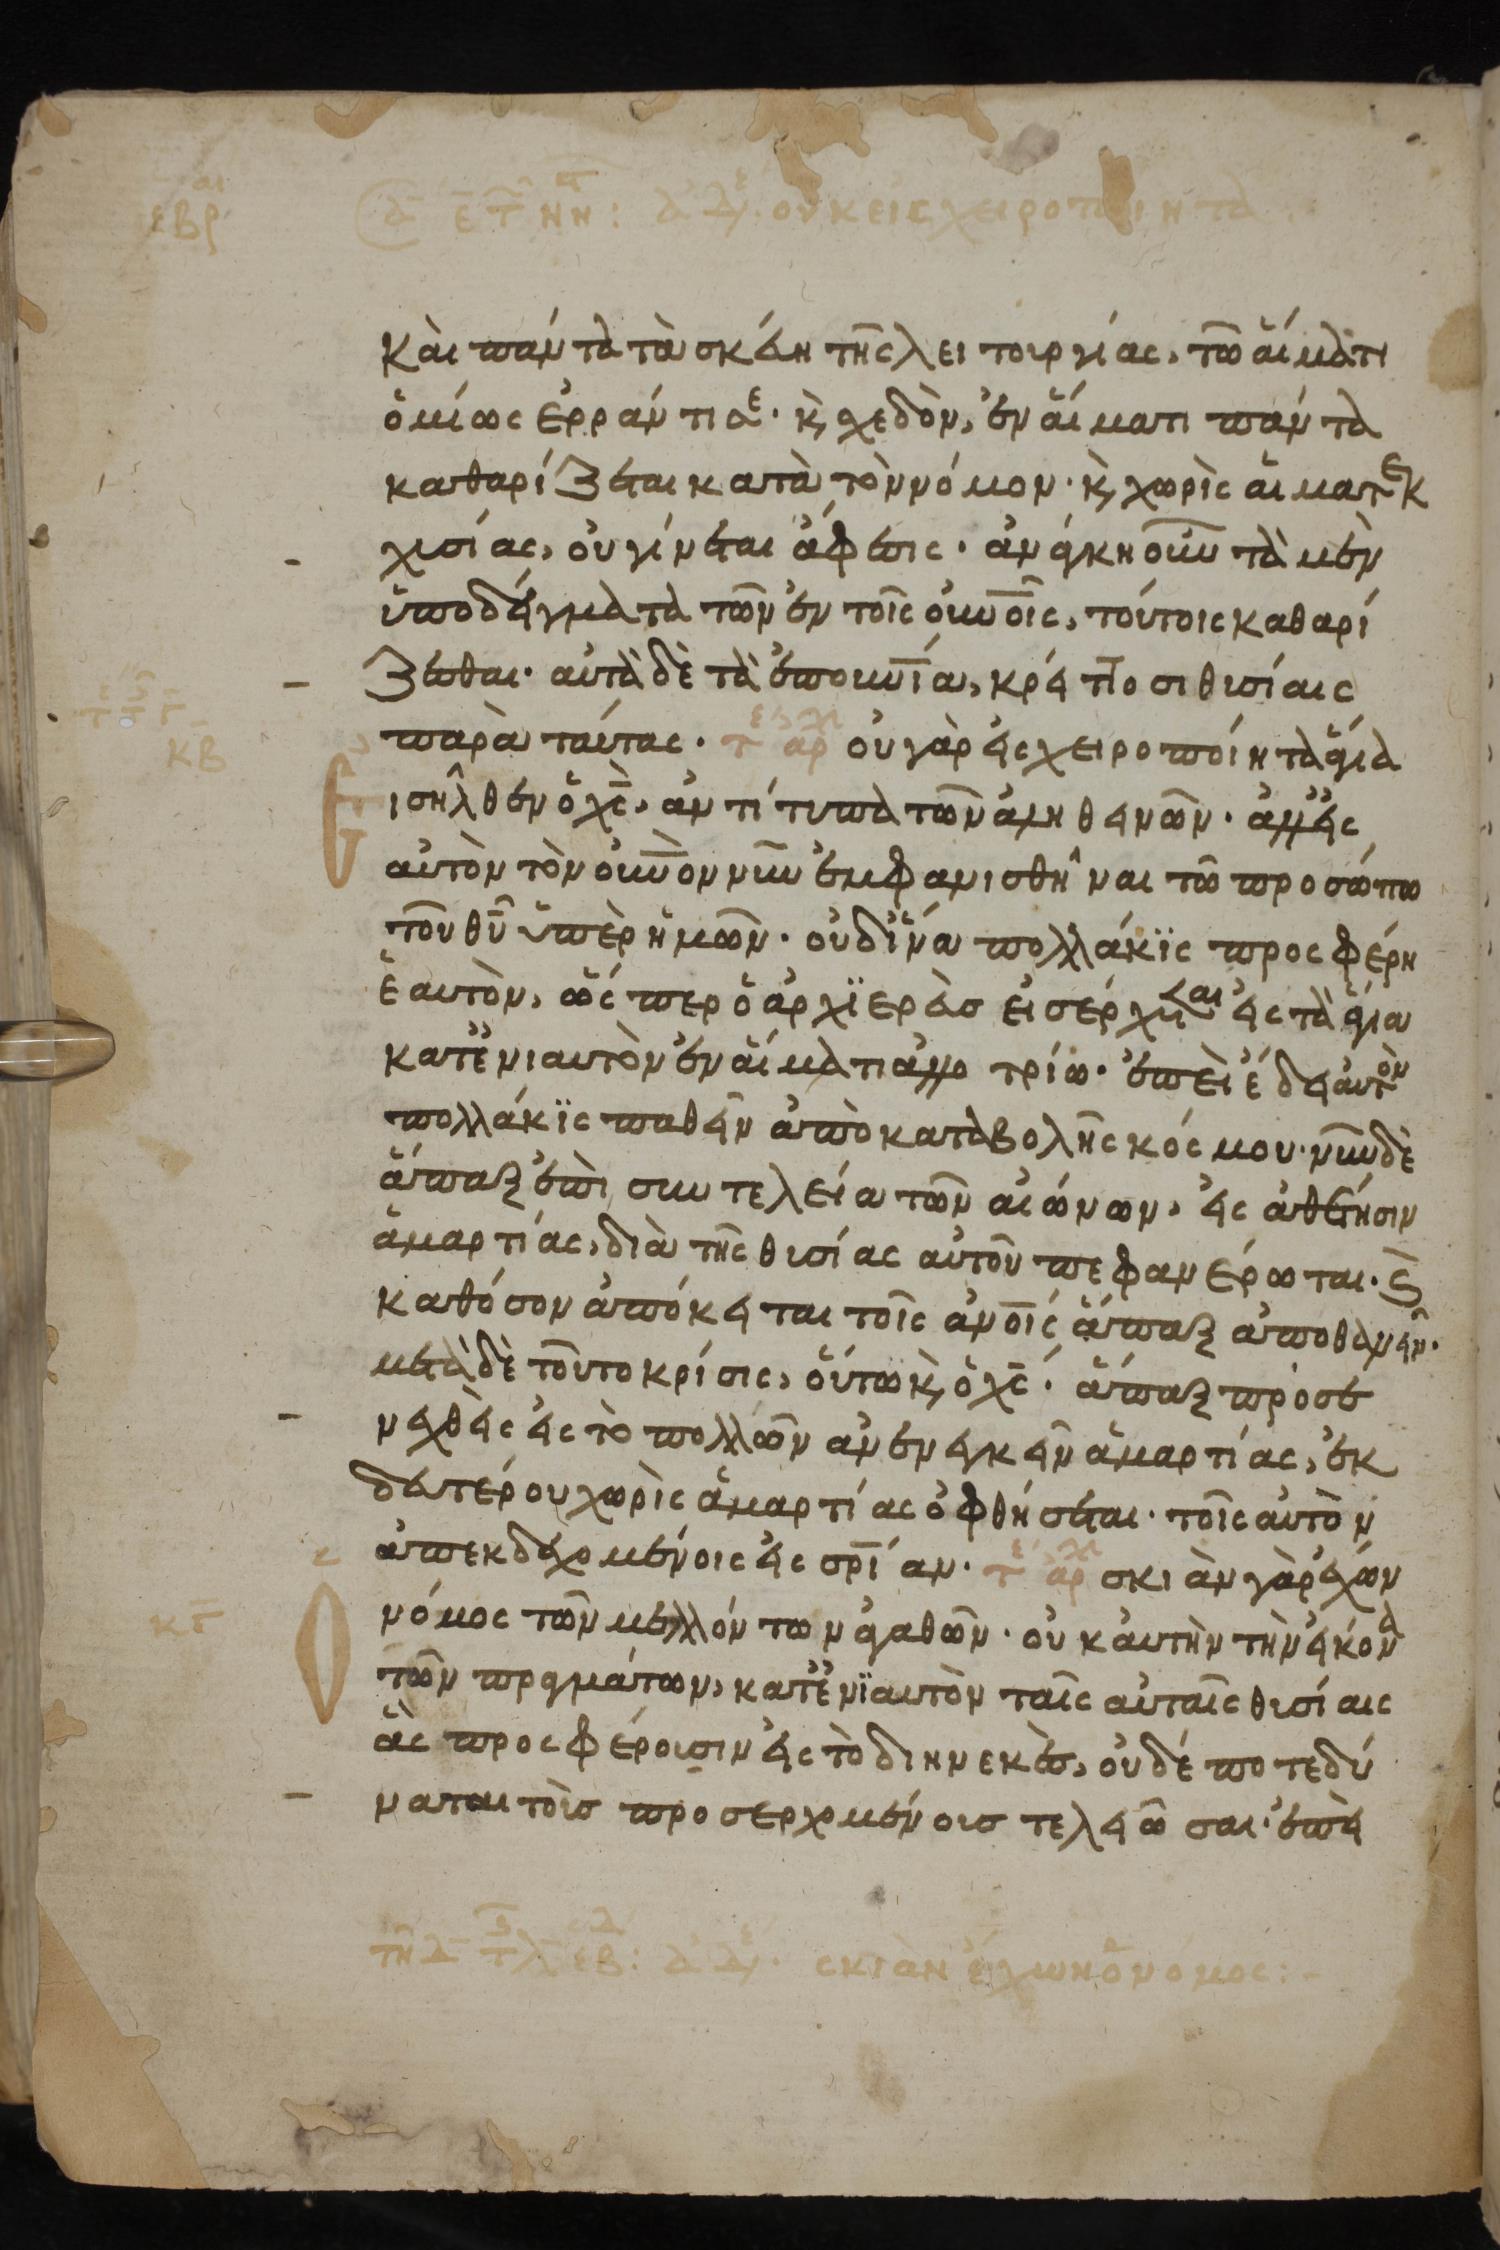 ἑβραι
ουκ εις χειροποιητα
κὰι πάντα τὰ σκέυη τῆς λειτουργίας, τῶ ἅίματι
ὁμίως ἐρράντισε. κ, σχεδὸν, ἐν ἅίματι πάντα
καθαρίζεται κατὰ τὸν νόμον. κ, χωρὶς ἁιματεκ
χυσίας, ὀυ γίνεται ἄφεσις. ἀνάγκη οὖν τὰ μὲν
ὑποδείγματα τῶν ἐν τοῖς οὐνοῖς, τούτοις καθαρί
ζεσθαι. αὐτὰ δὲ τὰ ἐπουνΐα, κρείττοσι θυσίαις
παρὰ ταύτας. τε ἀρχ οὐ γὰρ εἰς χειροποίητα ἅγια
ισῆλθεν ὁ χς, ἀντίτυπα τῶν ἀληθεινῶν. ἀλλ' εἰς
αὐτὸν τὸν οὐνὸν νῦν ἐμφανισθῆναι τῶ προσώπω
τοῦ θυ ὑπὲρ ἡμῶν. οὐδ' ἵνα πολλάκϊς προσφέρη
ἑαυτὸν, ὥσπερ ὁ ἀρχϊερεὺσ εἰσέρχεται εἰς τὰ ἅγια
κατ' ἐνιαυτὸν ἐν ἅίματι ἀλλοτρίω. ἐπεὶ ἔδει αὐτὸν
πολλάκϊς παθεῖν ἀπὸ καταβολῆς κόσμου. νῦν δὲ
ἅπαξ ἐπὶ συντελεία τῶν αἰώνων, εἰς ἀθέτησιν
ἁμαρτίας, διὰ τῆς θυσίας αὐτοῦ πεφανέρωται. κ
καθόσον ἀπόκειται τοῖς ἀνοῖς ἅπαξ ἀποθανεῖν.
μετὰ δὲ τοῦτο κρίσις, οὕτω κ, ὁ χς. ἅπαξ προσε
νεχθεὶς εἰς τὸ πολλῶν ἀνενεγκεῖν ἁμαρτίας, ἐκ
δευτέρου χωρὶς ἁμαρτίας ὀφθήσεται. τοῖς αὐτὸν
ἀπεκδεχομένοις εἰς σρΐαν. τε ἀρχ σκιὰν γὰρ ἔχων
κβ
κγ
νόμος τῶν μελλόντων ἀγαθῶν. οὐκ αὐτὴν τὴν εἰκόνα
τῶν πραγμάτων, κατ' ἐνϊαυτὸν ταῖς αὐταῖς θυσίαις
ἃς προσφέρουσιν εἰς τὸ διηνεκὲς, οὐδέποτε δύ
ναται τοὺσ προσερχομένουσ τελειῶσαι. ἐπεὶ
σκιὰν ἔχων ὁ νόμος:-